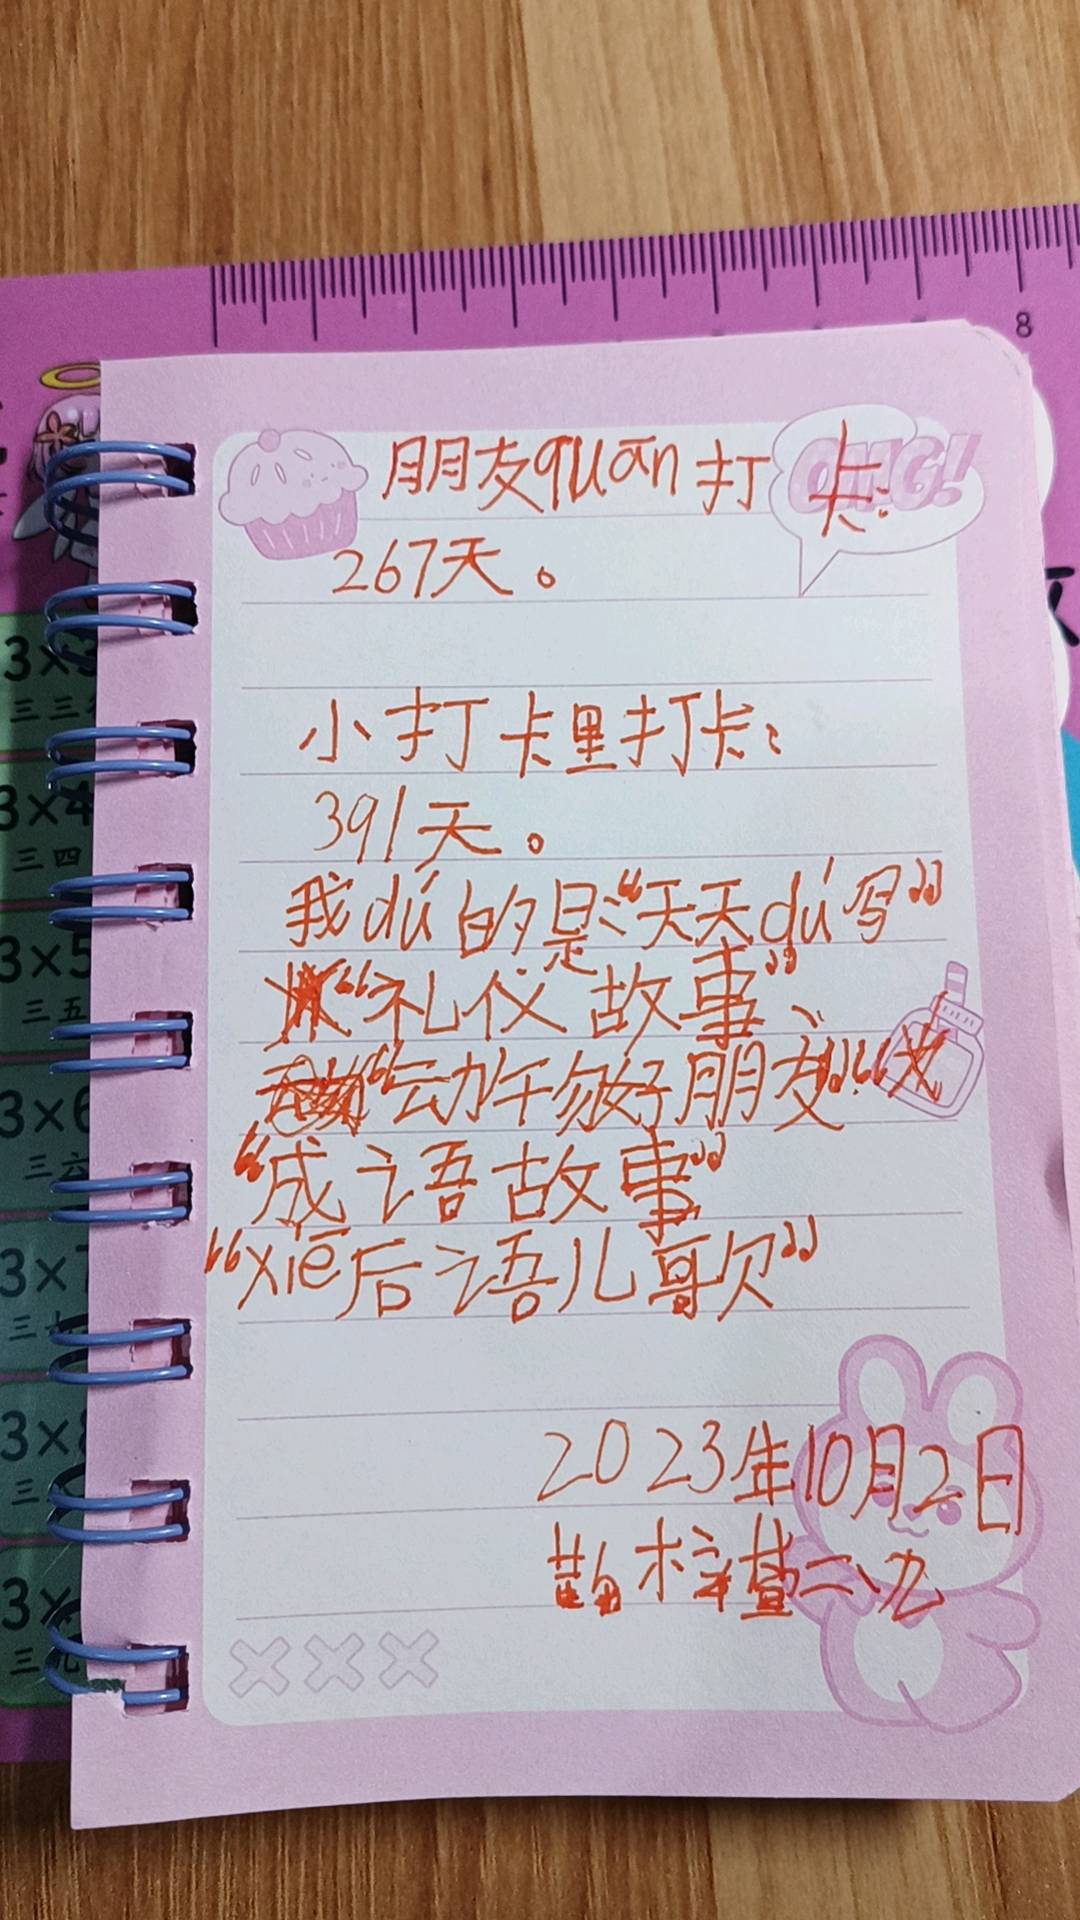 8
OMG!
朋友quān打卡:
267天。
小打卡里打卡:
391天。
我dú的是:“天天dú写”
“礼仪故事”、
“动午好朋友”
“成语故事”
“xiē后语儿歌”
2023年10月2日
3×3
三三
3×4
三四
3×5
三五
3×6
三六
3×
三
3×
三
3×
三